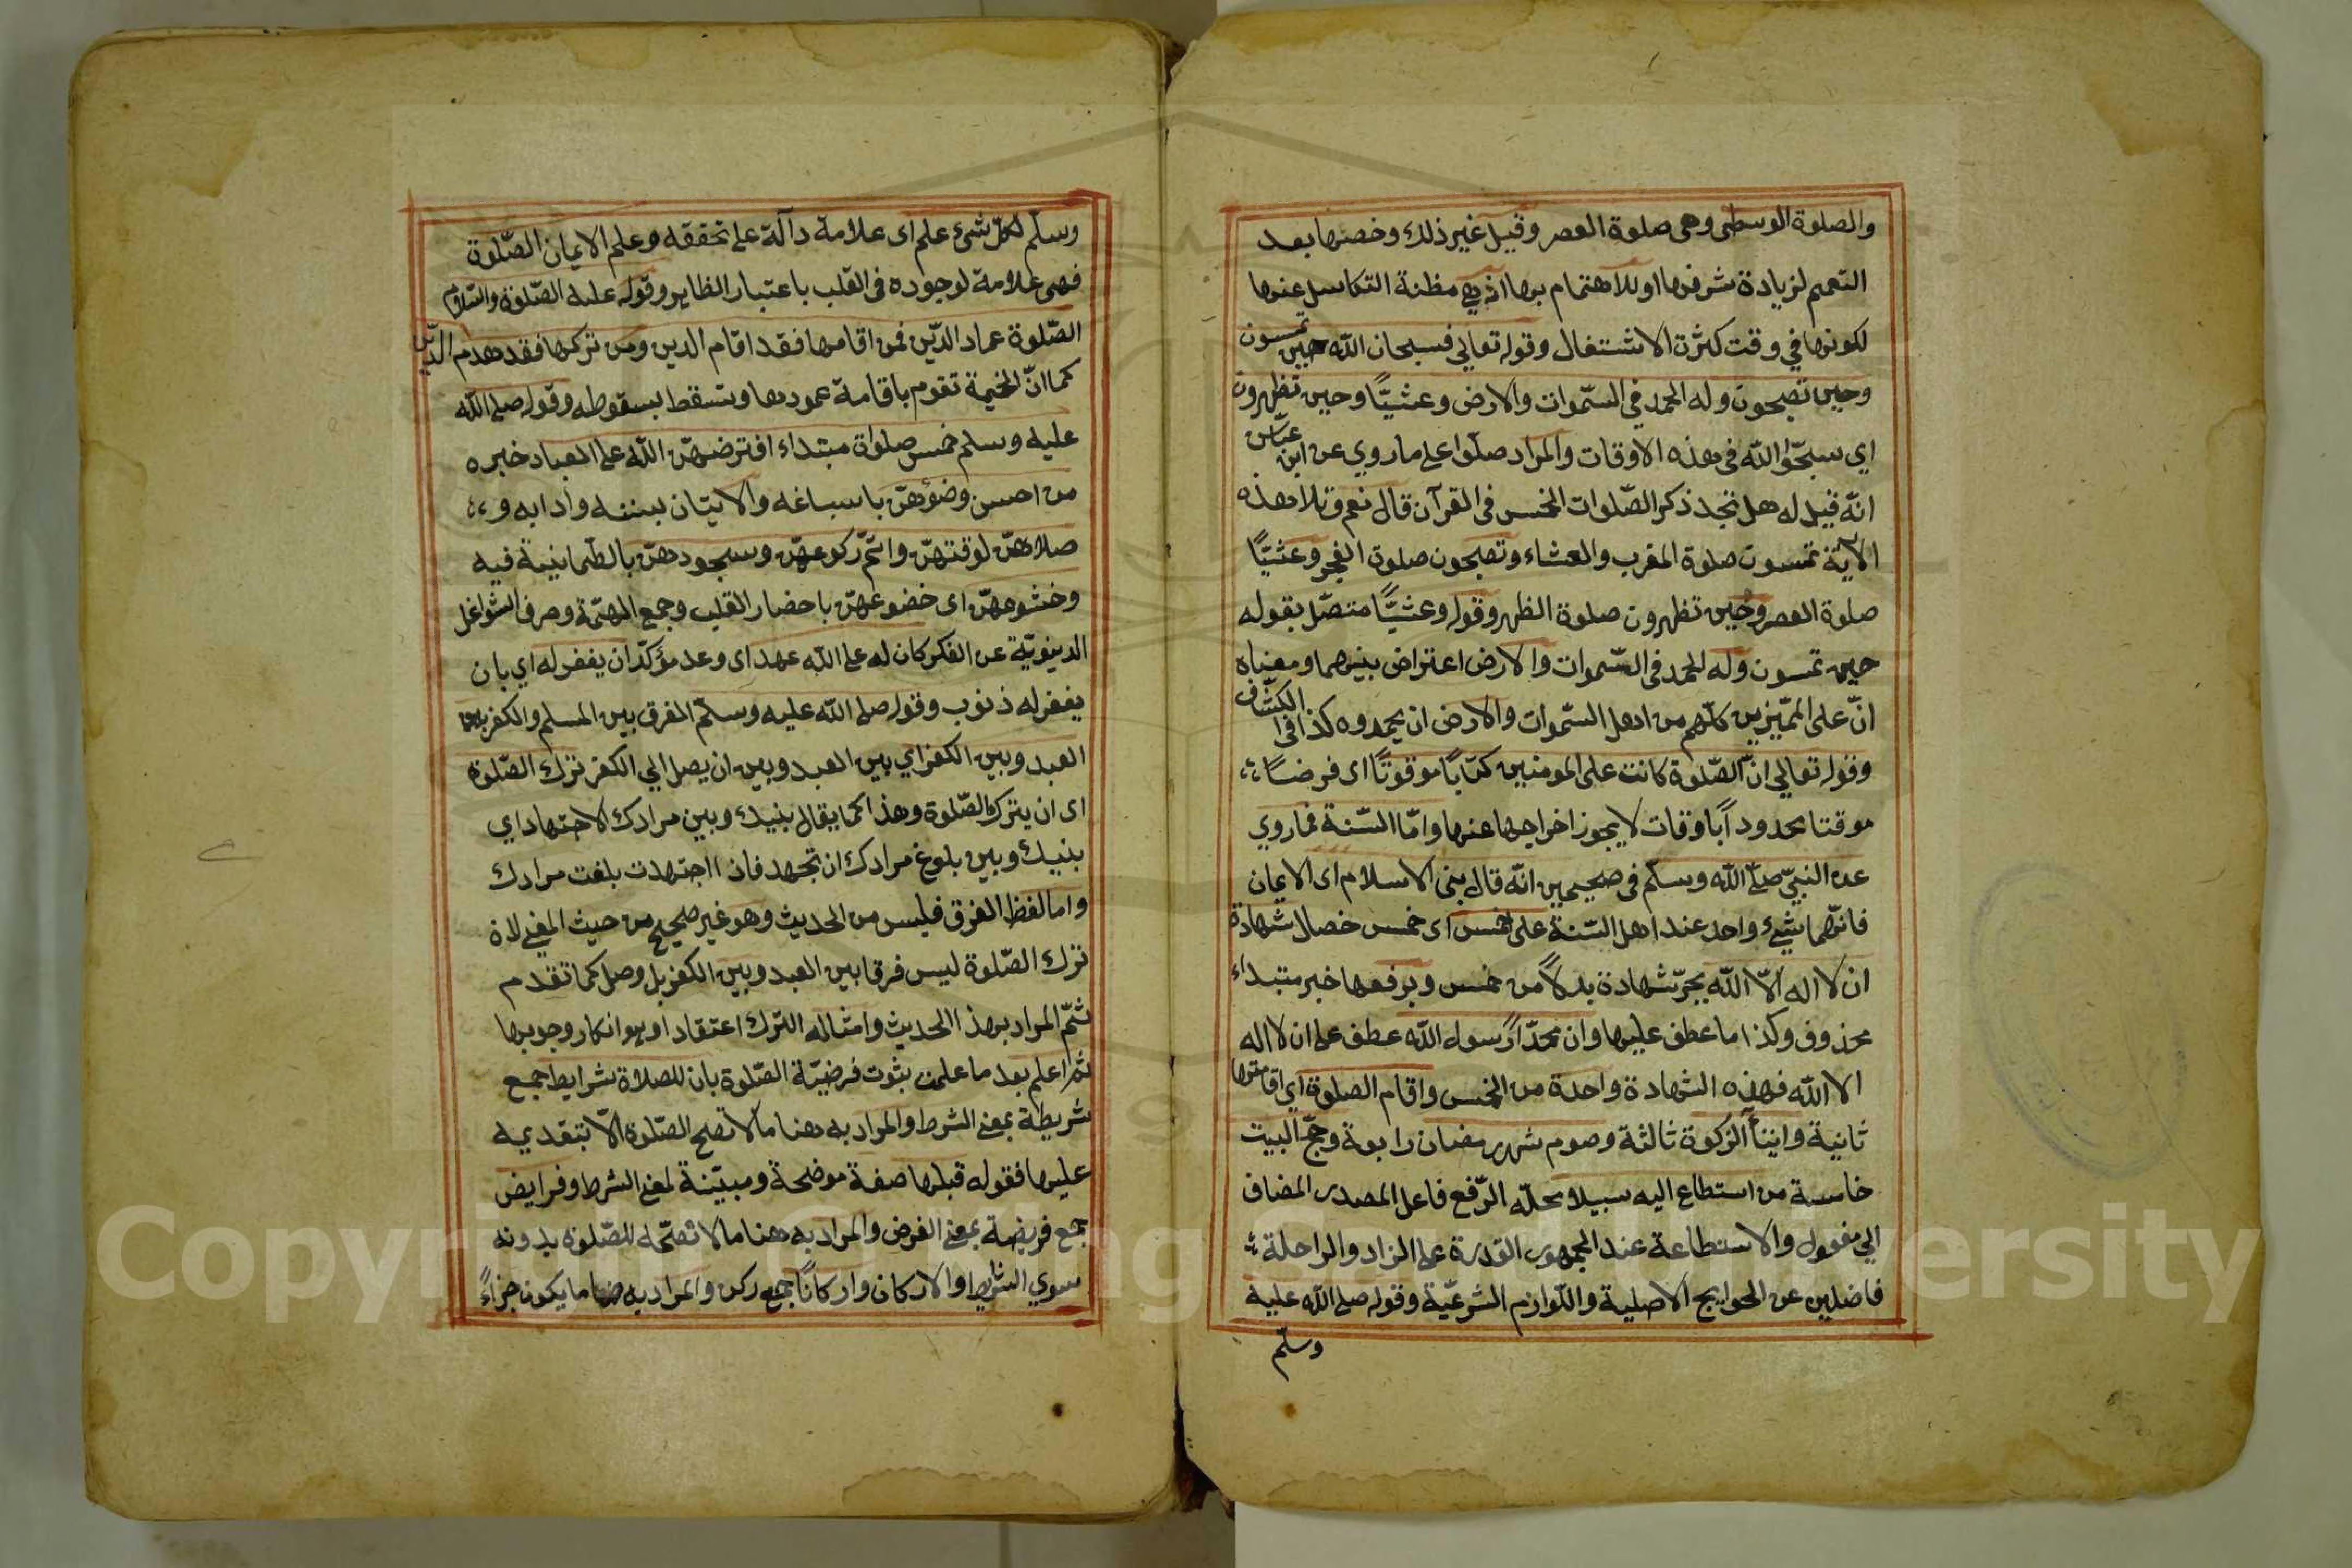 والصلوة الوسطى وهى صلوة العصر وقيل غير ذلك وخصها بعد
التعميم لزيادة شرفها او للاهتمام بها اذ هي مظنة التكاسل عنها
لكونها في وقت كثرة الاشتغال وقوله تعالي فسبحان الله حين تمسون
وحين تصبحون وله الحمد في السّموات والارض وعشيًّا وحين تظهرون
اي سبحّوا الله في هذه الاوقات والمراد صلّوا على ما روي عن ابن عبّاس
انّه قيل له هل تجد ذكر الصّلوات الخمس في القرآن قال نعم وتلا هذه
الآية تمسون صلوة المغرب والعشاء وتصبحون صلوة الفجر وعشيًّا
صلوة العصر وحين تظهرون صلوة الظهر وقوله وعشيًّا متصّل بقوله
حين تمسون وله الحمد في السّموات والارض اعتراض بينهما ومعناه
انّ على المميّزين كلّهم من اهل السّموات والارض ان يحمدوه كذا في الكشّاف
وقوله تعالي انّ الصّلوة كانت على المومنين كتابًا موقوتًا اى فرضًا
موقتا محدوداً باوقات لا يجوز اخراجها عنها وامّا السّنة فما روي
عن النبيّ صلّى الله وسلّم فى صحيحين انّه قال بنى الاسلام اى الايمان
فانّهما شيء واحد عند اهل السّنة على خمس اى خمس خصال شهادة
ان لا اله الّا الله بجرّ شهادة بدلاً من خمس وبرفعها خبر مبتداء
محذوف وكذا ما عطف عليها وان محمّداً رسول الله عطف على ان لا اله
الا الله فهذه الشهادة واحدة من الخمس واقام الصلوة اي اقامتها
ثانية وايتاء الزكوة ثالثة وصوم شهر رمضان رابعة وحجّ البيت
خامسة من استطاع اليه سبيلا محلّه الرّفع فاعل المصدر المضاف
الي مفعوله والاستطاعة عند الجمهور القدرة على الزاد والراحلة
فاضلين عن الحوايج الاصلية واللّوازم الشرعيّة وقوله صلى الله عليه
وسلّم
وسلّم لكلّ شىء علم اى علامة دالّة على تحققه وعلم الايمان الصّلوة
فهى علامة لوجوده فى القلب باعتبار الظاهر وقوله عليه الصّلوة والسّلام
الصّلوة عماد الدّين فمن اقامها فقد اقام الدين ومن تركها فقد هدم الدّين
كما انّ الخيمة تقوم باقامة عمودها وتسقط بسقوطه وقوله صلى الله
عليه وسلم خمس صلواة مبتداء افترضهنّ الله على العباد خبره
من احسن وضوءهنّ باسباغه والاتيان بسننه وآدابه و
صلاهنّ لوقتهنّ واتمّ ركوعهنّ وسجودهنّ بالطّمانينة فيه
وخشوعهنّ اى خضوعهنّ باحضار القلب وجمع الهمّة وصرف الشواغل
الدنيويّة عن الفكر كان له على الله عهد اى وعد مؤكّد ان يغفر له اي بان
يغفر له ذنوب وقوله صلى الله عليه وسلّم الفرق بين المسلم والكفر
العبد وبين الكفر اي بين العبد وبين ان يصل الي الكفر ترك الصّلوة
اى ان يترك الصّلوة وهذا كما يقال بينك وبين مرادك الاجتهاد اي
بينك وبين بلوغ مرادك ان تجهد فاذا اجتهدت بلغت مرادك
واما لفظ الفرق فليس من الحديث وهو غير صحيح من حيث المعنى لان
ترك الصّلوة ليس فرقا بين العبد وبين الكفر بل وصل كما تقدم
ثمّ المراد بهذا الحديث وامثاله الترك اعتقادا وهو انكار وجوبها
ثم اعلم بعد ما علمت بثوت فرضيّة الصّلوة بان للصلاة شرايط جمع
شريطة بمعنى الشرط والمراد به هنا ما لا تصح الصّلوة الّا بتقديمه
عليها فقوله قبلها صفة موضحة ومبيّنة لمعنى الشرط وفرايض
جمع فريضة بمعنى الفرض والمراد به هنا ما لا تصحّ الصّلوة بدونه
سوي الشرايط والاركان واركانًا جمع ركن والمراد به هنا ما يكون جزاءً
Copyright © King Saud University